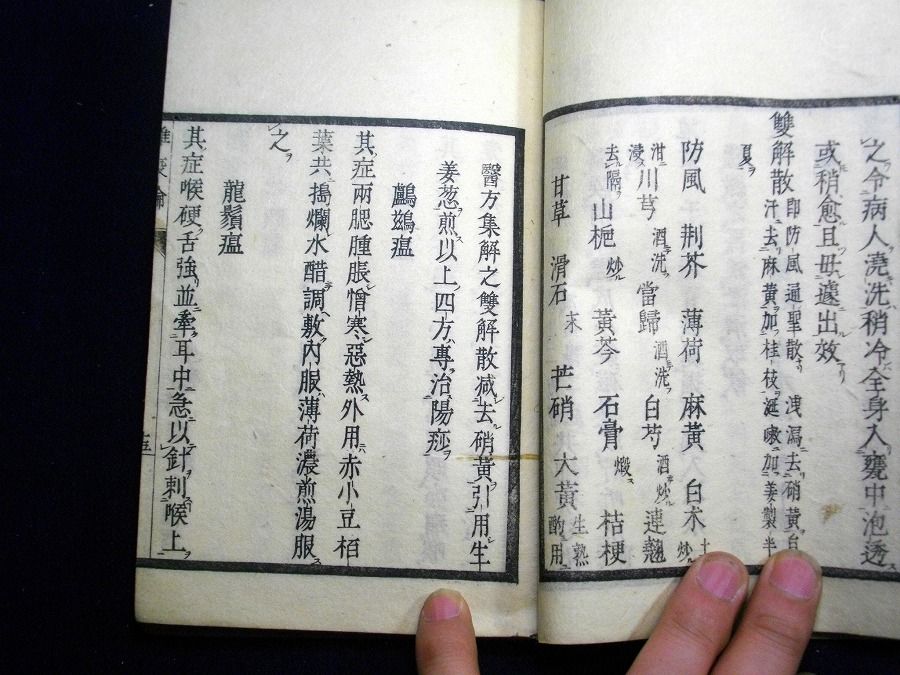 之令病人澆洗稍冷全身入甕中泡透
或稍愈且毋遽出效
雙解散 即防風通聖散 洩漏去硝黄 自
汗去麻黄加桂枝 涎嗽加姜製半
夏
防風 荆芥 薄荷 麻黄 白朮 土炒
泔浸 川芎 酒洗 當歸 酒洗 白芍 酒炒 連翹
去隔 山梔 炒 黄芩 石膏 煅 桔梗
甘草 滑石 末 芒硝 大黄 生熟酌用
醫方集解之雙解散减去硝黄引用生
姜葱煎以上四方專治陽痧
鸕鷀瘟
其症兩腮腫脹憎寒惡熱外用赤小豆栢
葉共搗爛水醋調敷内服薄荷濃煎湯服
之
龍鬚瘟
其症喉硬舌強並牽耳中急以針刺喉上